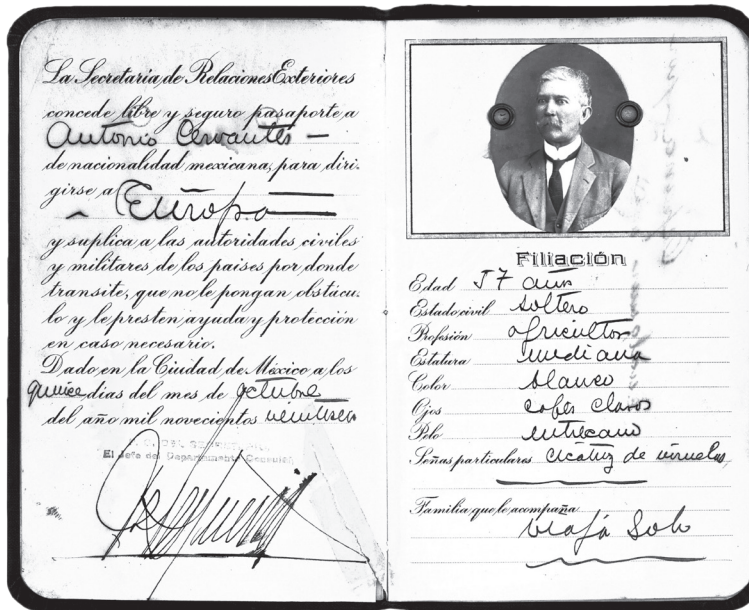 La Secretaria de Relaciones Exteriores
concede libre y seguro pasaporte a
Antonio Cervantes —
de nacionalidad mexicana, para diri-
girse a
Europa
y suplica a las autoridades civiles
y militares de los paises por donde
transite, que no le pongan obstácu-
lo y le presten ayuda y protección
en caso necesario.
Dado en la Ciudad de México a los
quince dias del mes de octubre
del año mil novecientos
El Jefe del Departamento Consular,
Filiación
Edad 57 años
Estado civil soltero
Profesión agricultor
Estatura mediana
Color blanco
Ojos cafes claros
Pelo entrecano
Señas particulares cicatriz de viruelas
Familia que le acompaña
viaja solo